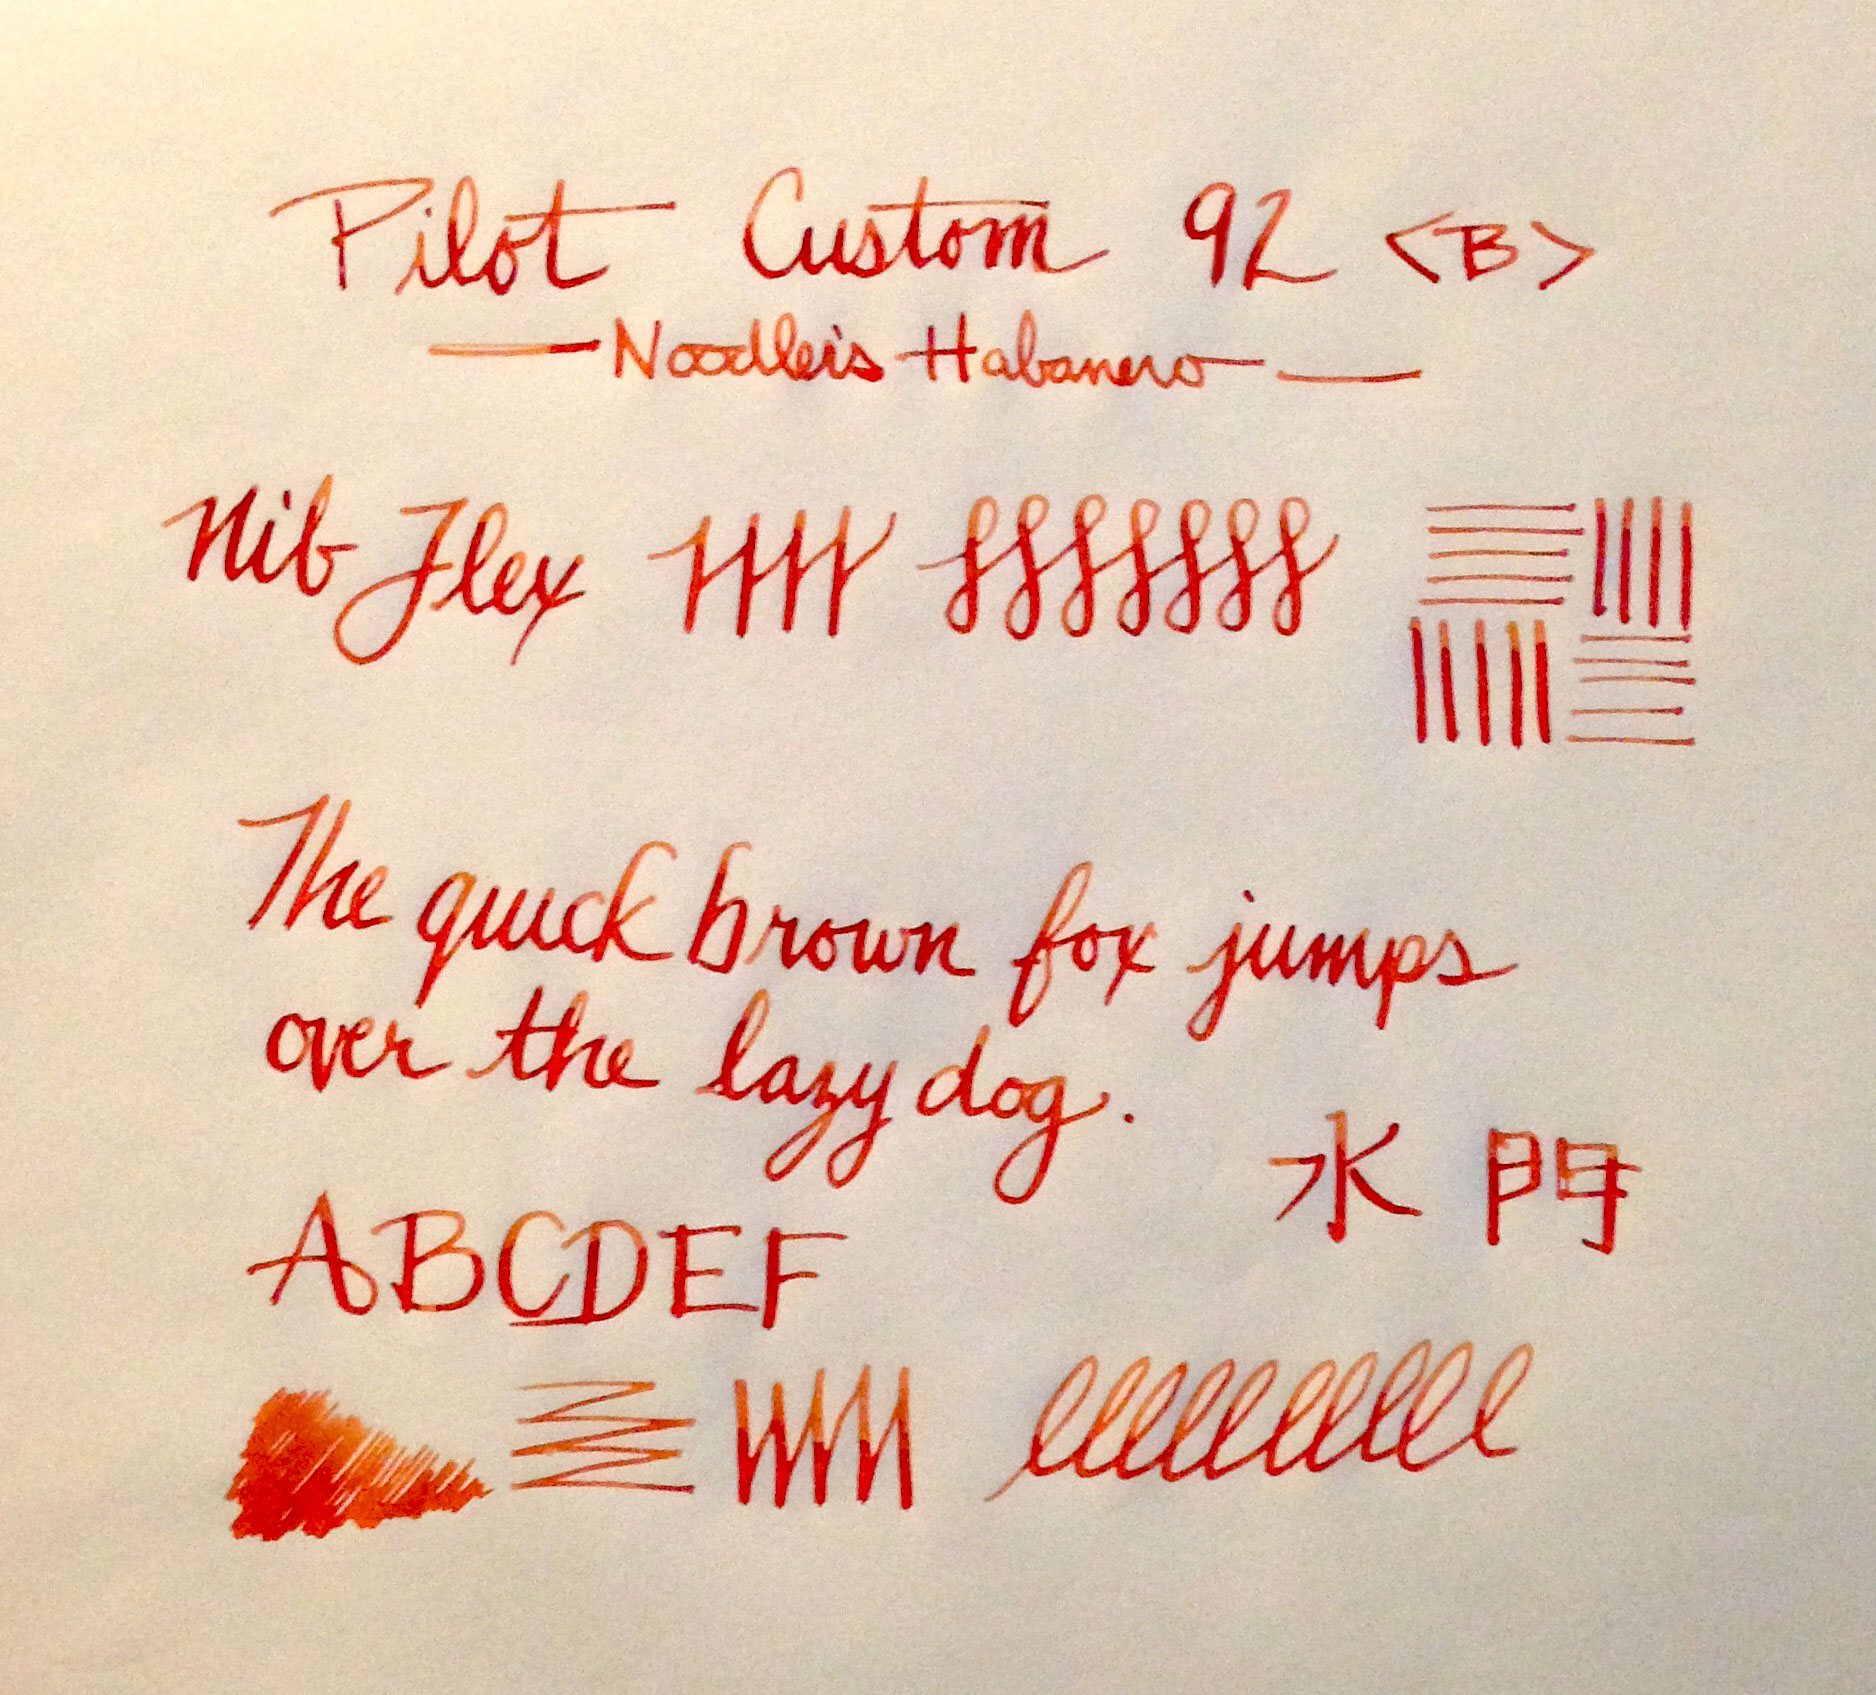 Pilot Custom 92 <B>
— Noodler's Habanero —
Nib Flex
The quick brown fox jumps
over the lazy dog.
水 門
ABCDEF